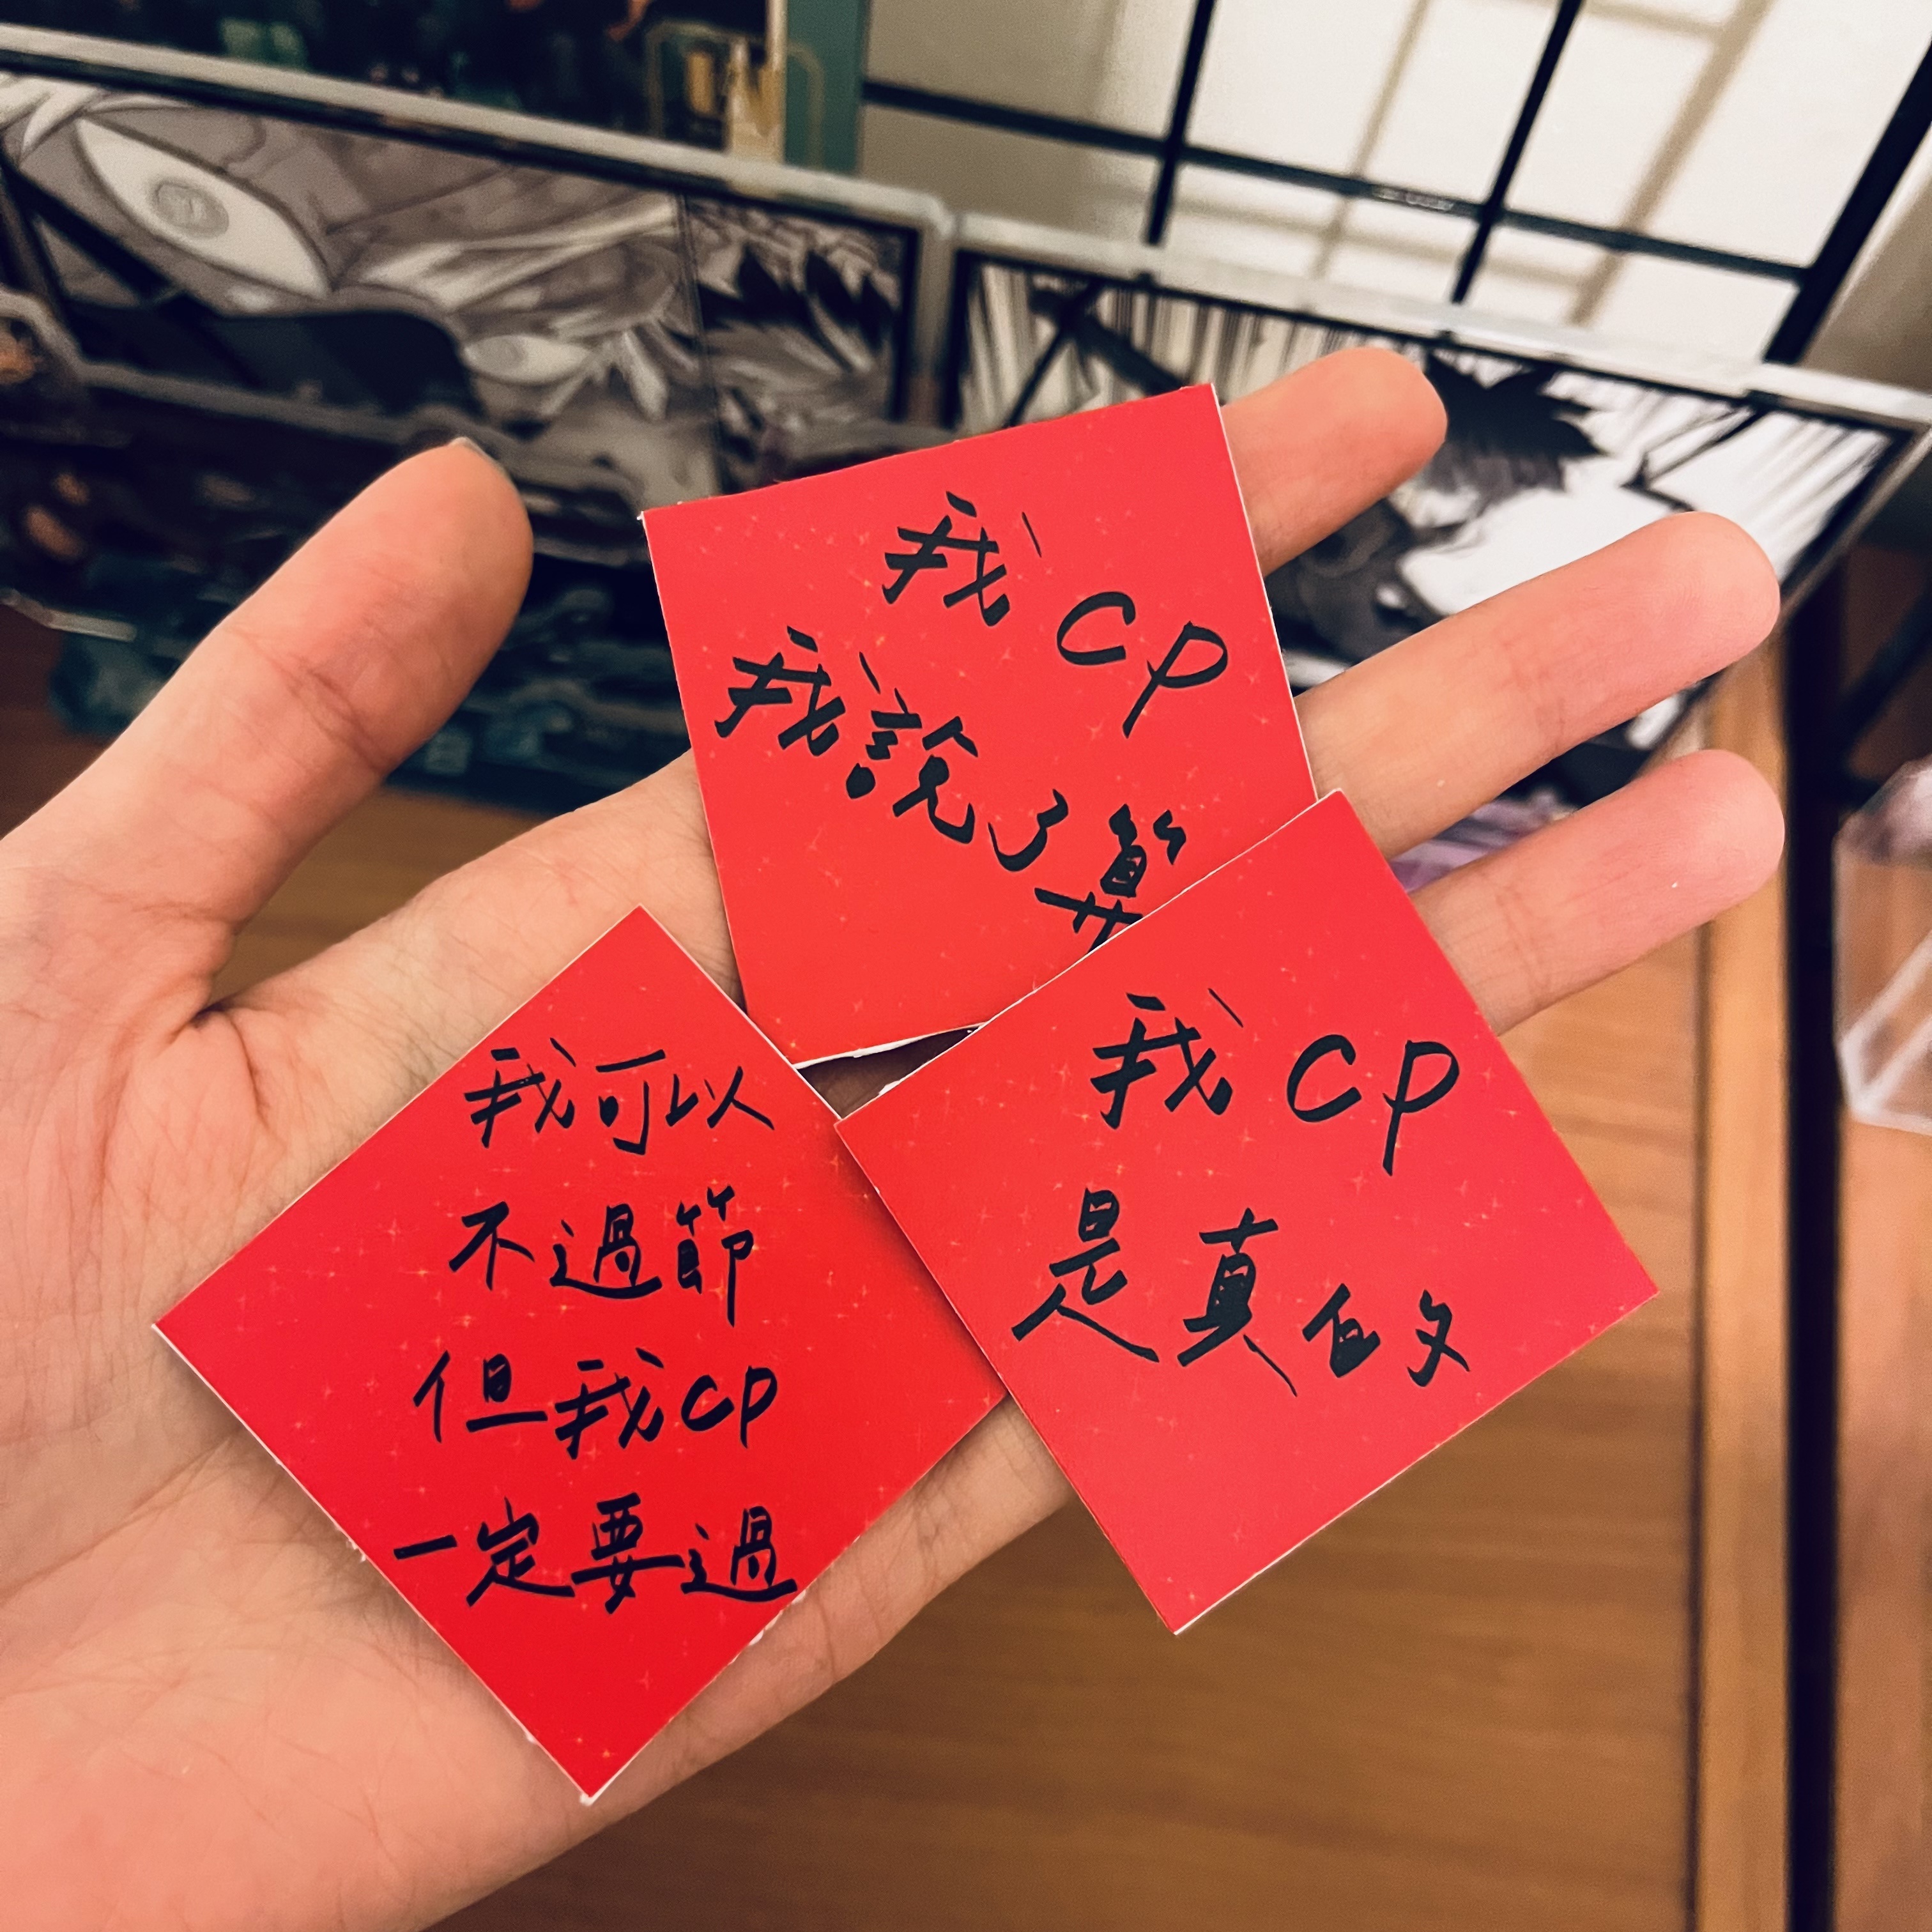 我CP
我說了算
我CP
是真的
我可以
不過節
但我CP
一定要過